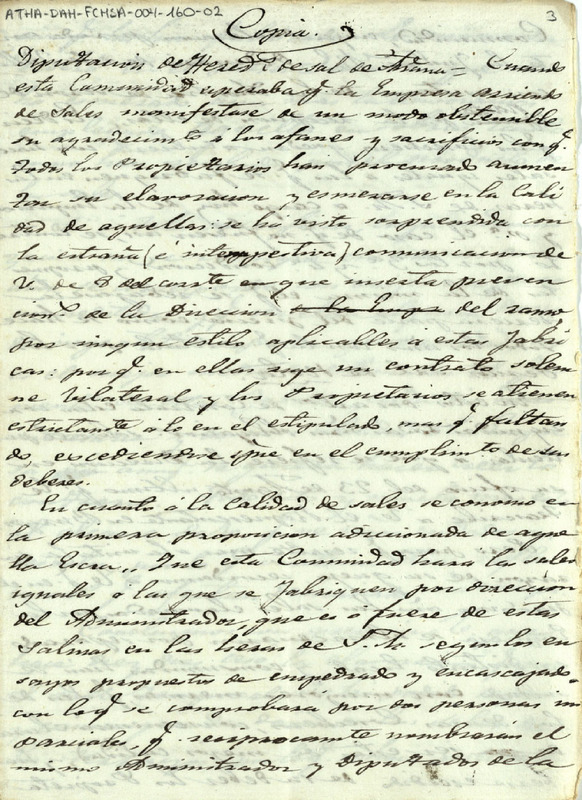 ATHA-DAH-FCHSA-004-160-02
3
Copia.
Diputacion de Hered.s de sal de Añana = Cuando
esta Comunidad esperaba q.e la Empresa arriendo
de Sales manifestase de un modo obstensible
su agradecimto á los afanes y sacrificios con q.e
todos los Propietarios han procurado aumen
tar su elavoracion y esmerarse en la Cali
dad de aquellas: se ha visto sorprendida con
la estraña (é intempestiva) comunicacion de
V. de 8 del corrte en que inserta preven
cion.s de la Direccion del ramo
por ningun estilo aplicables á estas Fabri
cas: por q.e en ellas rige un contrato solem
ne bilateral y los Propietarios se atienen
estrictamte a lo en él estipulado, mas q.e faltan
do, escediendose en el cumplimto de sus
deberes.
En cuanto á la Calidad de sales se convino en
la primera proposicion adicionada de aque
lla Escra,, Que esta Comunidad hara las sales
iguales á las que se fabriquen por direccion
del Administrador, que es ó fuere de estas
Salinas en las heras de S. M. segun los en
sayos propuestos de empedrado y encascajado.
con lo q.e se comprobará por dos personas im
parciales, q.e reciprocamte nombrarán el
mismo Administrador y Diputados de la